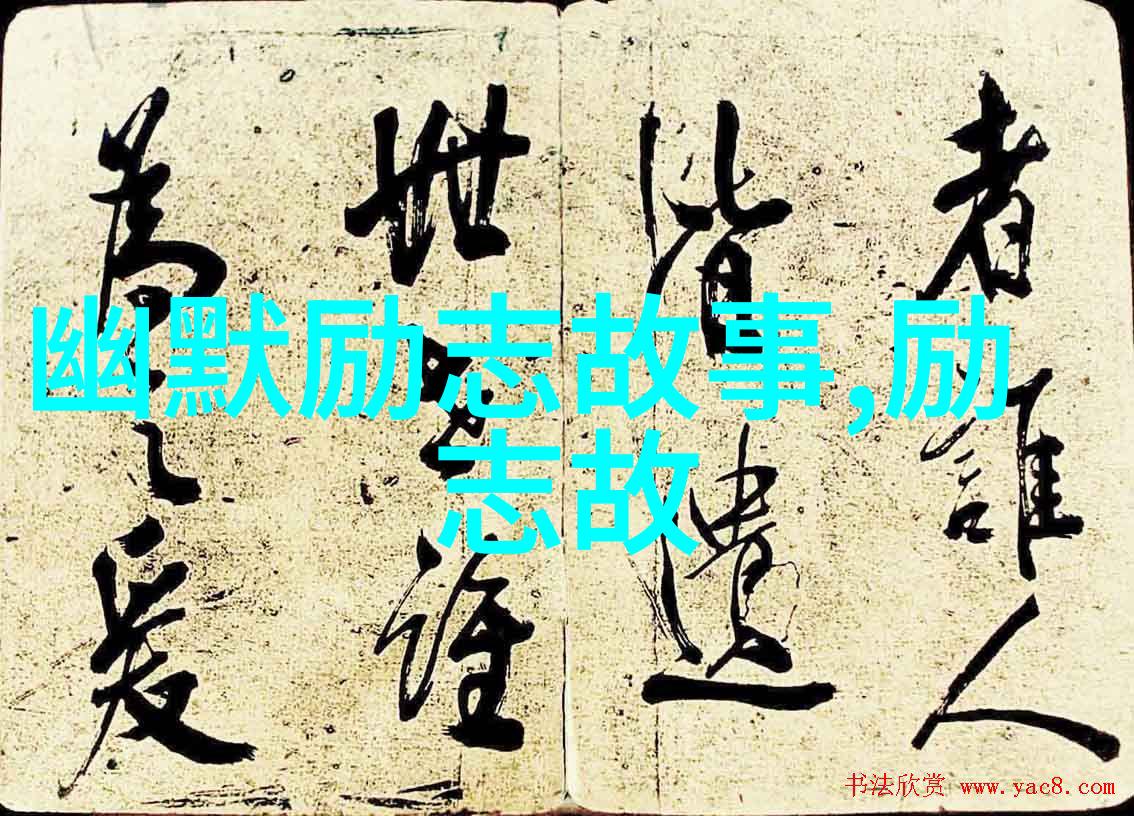 幽默励志故事,励
志故
者誰人
皆遺
世誰
為之
书法欣赏 www.yac8.com